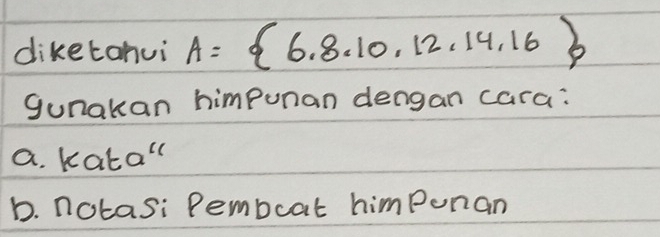 diketahui A = { 6.8.10.12.14.16 }
gunakan himpunan dengan cara:
a. kata"
b. notasi Pembuat himpunan